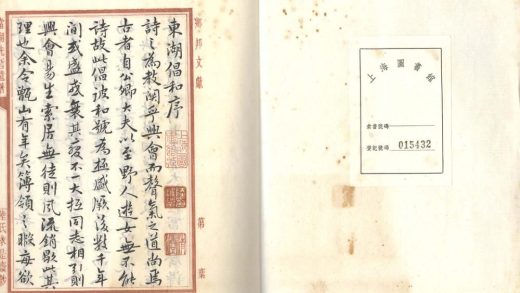 上海圖書館
索書號碼
登記號碼 015432
鄉邦文獻
第 葉
東湖倡和序
詩之為教關乎興會而聲氣之道尚焉
古者自公卿大夫以至野人遊女無不能
詩故此倡彼和號為極盛厥後數千年
間或盛或衰其致不一大抵同志相引則
興會易生索居無徒則風流銷歇此其
理也余令甑山有年矣簿領之暇每欲